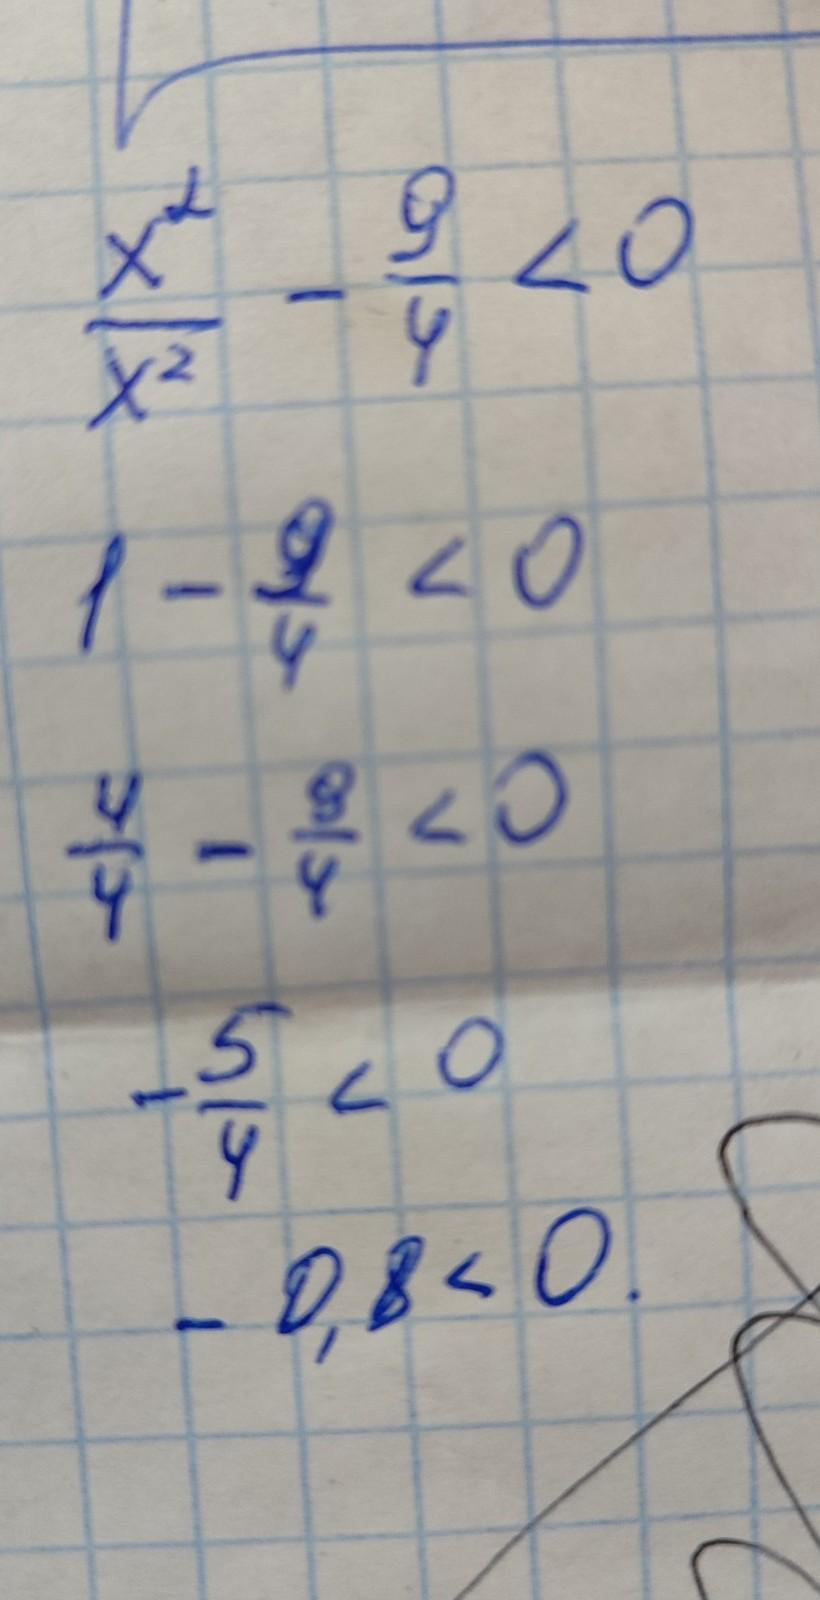 x²/x² - 9/4 < 0
1 - 9/4 < 0
4/4 - 9/4 < 0
-5/4 < 0
- 0,8 < 0.